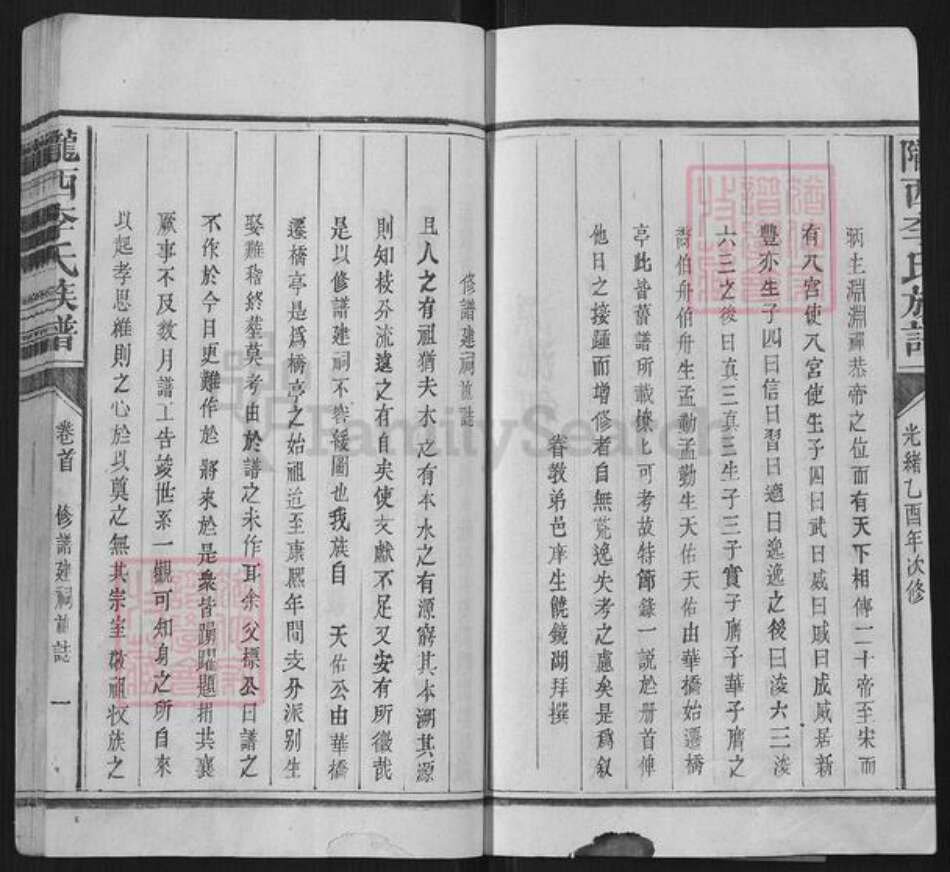 隴西李氏族譜
光緒乙酉年次修
昞生淵淵禪恭帝之位而有天下相傳二十帝至宋而
有八宮使八宮使生子四曰武曰威曰成威居新
豐亦生子四曰信曰習曰適曰逸逸之後曰浚六三浚
六三之後曰真三真三生子三子實子膺子華子膺之
伯舟伯舟生孟勳孟勳生天佑天佑由華橋始遷橋
亭此皆舊譜所載憭匕可考故特節錄一説於册首俾
他日之接踵而增修者自無荒逸失考之慮矣是爲叙
眷教弟邑庠生饒鏡湖拜撰
修譜建祠誌
且人之有祖猶夫木之有本水之有源窮其本溯其源
則知枝分流遠之有自矣使文獻不足又安有所徵哉
是以修譜建祠不容緩圖也我族自 天佑公由華橋
遷橋亭是爲橋亭之始祖迨至康熙年間支分派别生
娶難稽終塟莫考由於譜之未作耳余父標公曰譜之
不作於今日更難作於將來於是衆皆踴躍題捐共襄
厥事不及数月譜工告竣世系一觀可知身之所自來
以起孝思維則之心於以奠之無其宗室敬祖收族之
隴西李氏族譜
卷首 修譜建祠誌 一
FamilySearch